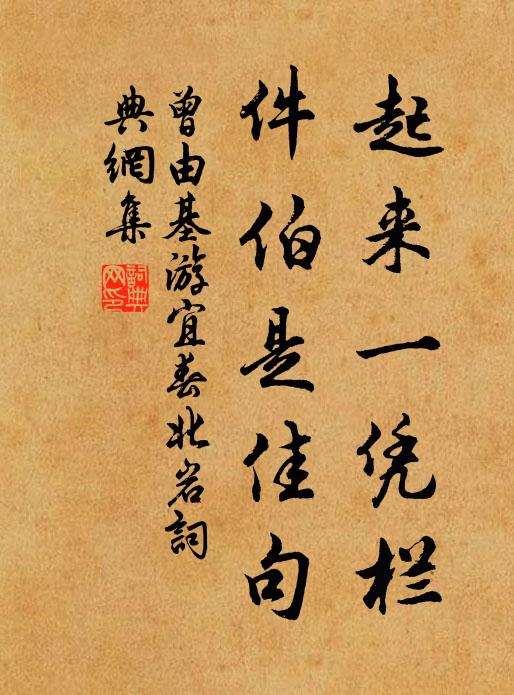 起来一凭栏
件伯是佳句
曾由基游宜春北岩詞
典網集
詞典
网印